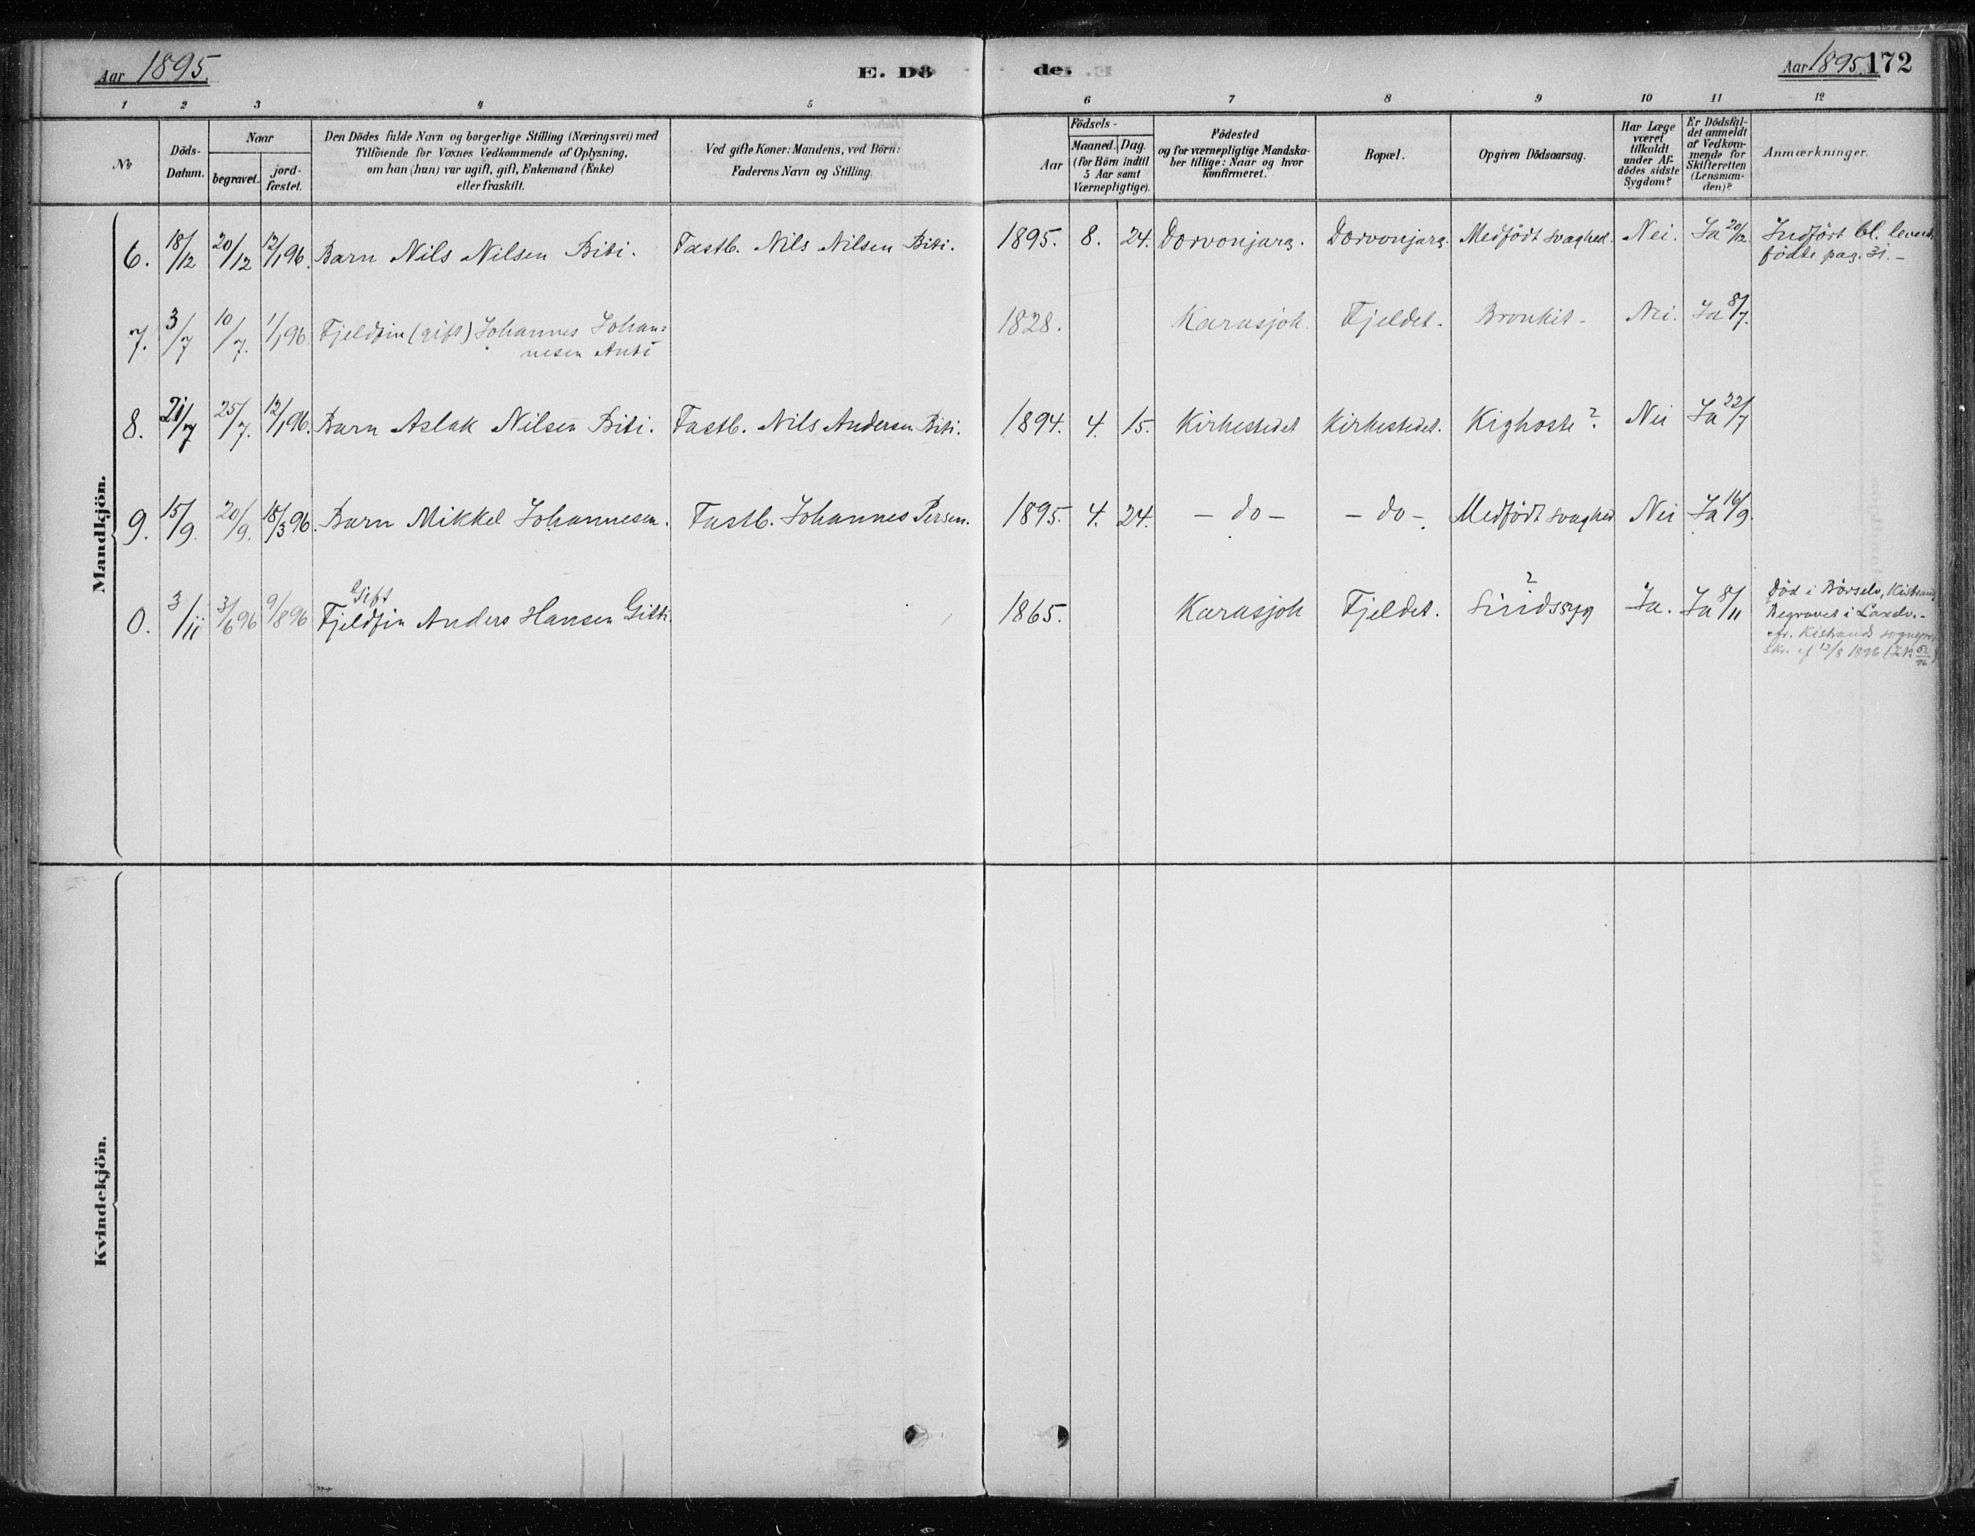 Aar 1895.
E. Dö
de.
Aar 1895. 172
1 2 3 4 5 6 7 8 9 10 11 12
No
Döds-
Datum.
Naar
begravet.
jord-
fæstet.
Den Dödes fulde Navn og borgerlige Stilling (Næringsvei) med
Tilföiende for Voxnes Vedkommende af Oplysning,
om han (hun) var ugift, gift, Enkemand (Enke)
eller fraskilt.
Ved gifte Koner: Mandens, ved Börn:
Faderens Navn og Stilling.
Aar
Födsels-
Maaned. Dag.
(for Börn indtil
5 Aar samt
Værnepligtige).
Födested
og for værnepligtige Mandska-
ber tillige: Naar og hvor
konfirmeret.
Bopæl.
Opgiven Dödsaarsag.
Har Læge
været
tilkaldt
under Af-
dödes sidste
Sygdom?
Er Dödsfal-
det anmeldt
af Vedkom-
mende for
Skifteretten
(Lensman-
den)?
Anmærkninger.
Mandkjön.
6. 18/12 20/12 12/1 96. Barn Nils Nilsen Biti. Fastb. Nils Nilsen Biti. 1895. 8. 24. Dorvonjarg. Dorvonjarg. Medfödt svaghed. Nei. Ja 20/12. Indfört bl. levend.
födte pag. 31.-
7. 3/7 10/7. 1/1 96 Fjeldfin (gift) Johannes Johan=
nesen Anti 1828. Karasjok. Fjeldet. Bronkit- Nei. Ja 8/7.
8. 21/7 25/7. 12/1 96. Barn Aslak Nilsen Biti. Fastb. Nils Andersen Biti. 1894. 4. 15. Kirkestedet Kirkestedet. Kighoste? Nei Ja 22/7
9. 15/9. 20/9. 18/3 96. Barn Mikkel Johannesen. Fastb. Johannes Persen. 1895. 4. 24. - do - - do -. Medfödt svaghed Nei Ja 16/9.
0. 3/11 3/6 96 9/8 96 Gift
Fjeldfin Anders Hansen Gitti. 1865. Karasjok Fjeldet. ?
Sindssyg Ja. Ja 8/11 Död i Börselv, Kistrand,
Begravet i Laxelv.-
cfr. Kistrands sognepr.
skr. af 12/8 1896
Kvindekjön.